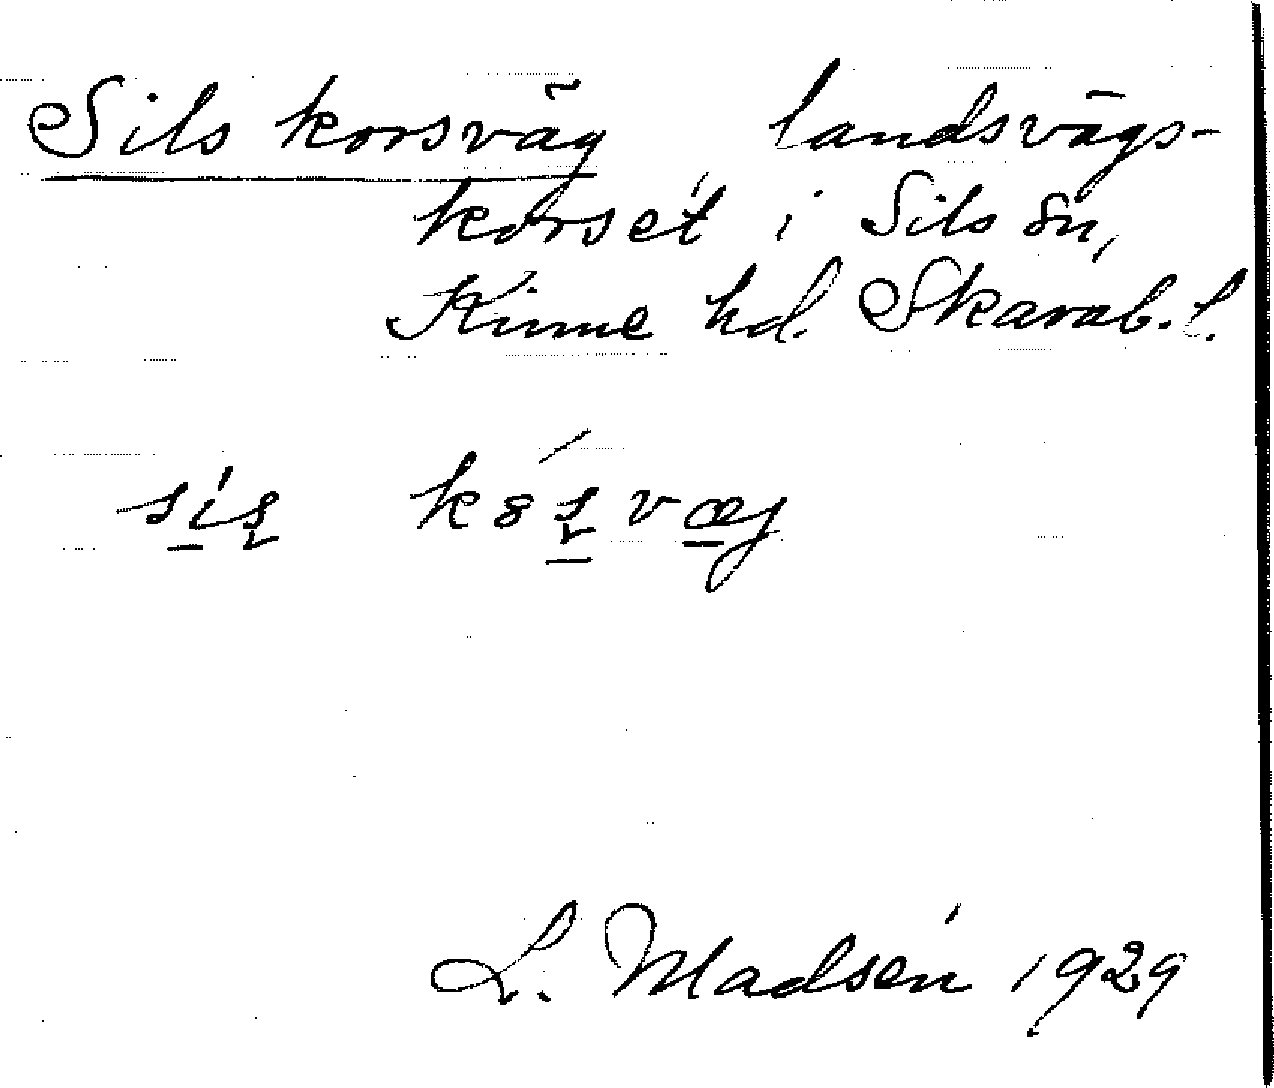 Sils korsväg landsvägs-
korset i Sils sn,
Kinne hd. Skarab. l.
sis kósvæg
L. Madsén 1929